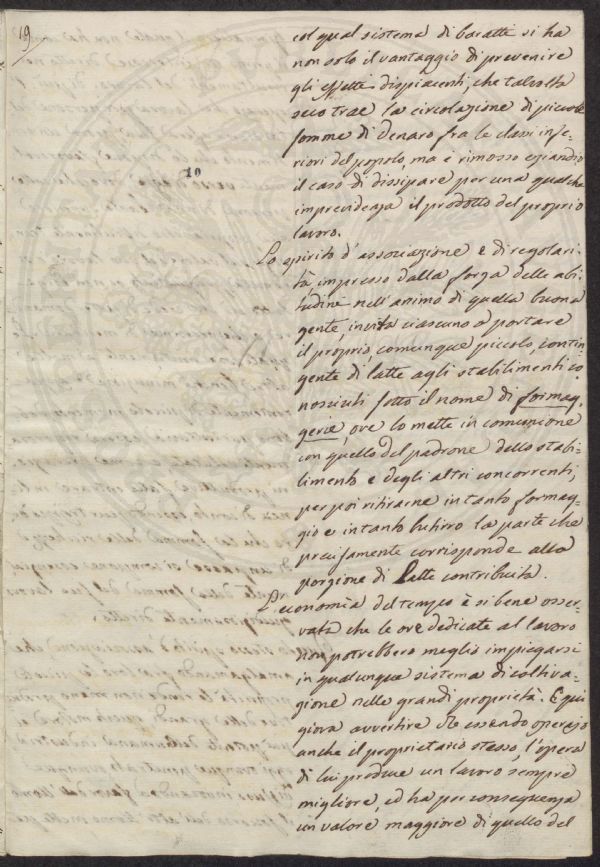 19
10
col qual sistema di baratti si ha
non solo il vantaggio di prevenire
gli effetti dispiacenti, che talvolta
seco trae la circolazione di piccole
somme di denaro fra le classi infe-
riori del popolo, ma è rimosso eziandio
il caso di dissipare per una qualche
imprevidenza il prodotto del proprio
lavoro.
Lo spirito d'associazione e di regolari-
tà, impresso dalla forza delle abi-
tudini nell'animo di quella buona
gente, invita ciascuno a portare
il proprio, comunque piccolo, contin-
gente di latte agli stabilimenti co
nosciuti sotto il nome di formag-
gerie, ove lo mette in comunione
con quello del padrone dello stabi-
limento e degli altri concorrenti,
per poi ritirarne in tanto formag-
gio e in tanto butirro la parte che
precisamente corrisponde alla
porzione di Latte contribuita.
L'economia del tempo è sì bene osser-
vata che le ore dedicate al lavoro
non potrebbero meglio impiegarsi
in qualunque sistema di coltiva-
zione nelle grandi proprietà. E qui
giova avvertire che essendo operajo
anche il proprietario stesso, l'opera
di lui produce un lavoro sempre
migliore, ed ha per conseguenza
un valore maggiore di quello del